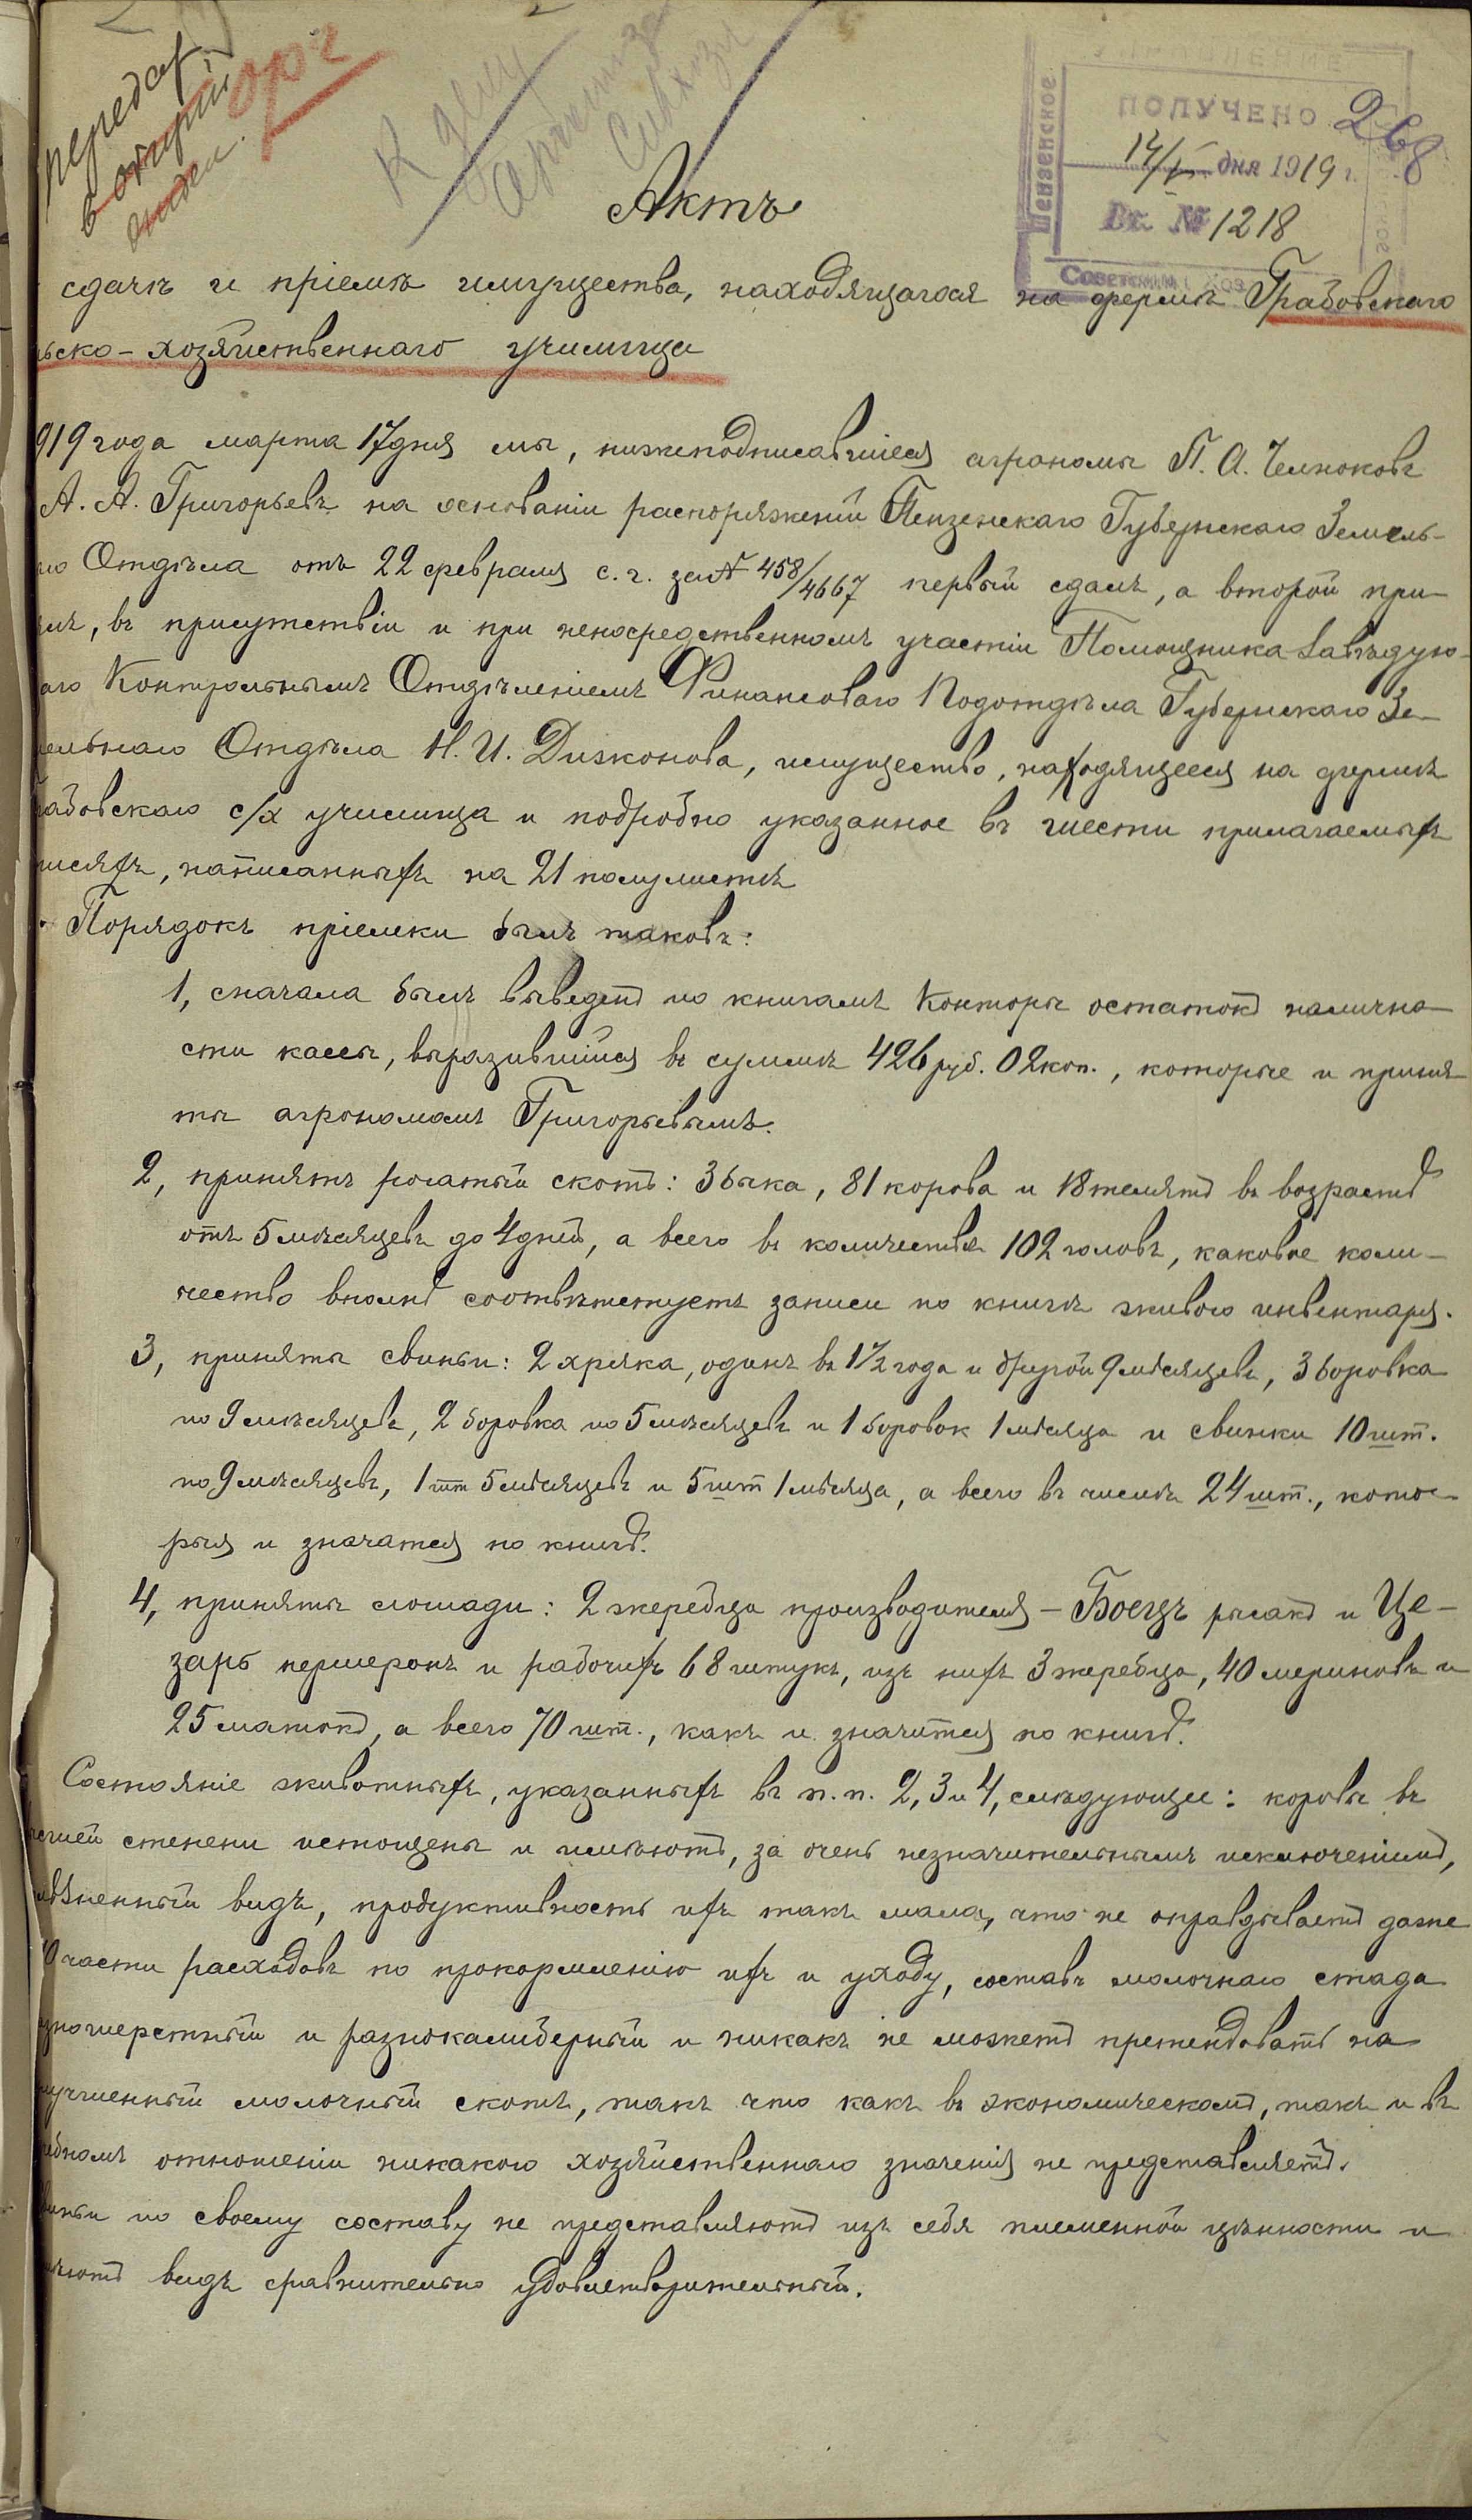 передат
в
орг
К делу
УПРАВЛЕНИЕ
Пензенское
ПОЛУЧЕНО
268
14/V дня 1919 г.
Вх. № 1218
Советскими Хоз
Актъ
сдачи и пріемки имущества, находящагося на фермѣ Грабовскаго
ьско-хозяйственнаго училища
919 года марта 17 дня мы, нижеподписавшіеся агрономы П. А. Челноковъ
А. А. Григорьевъ на основаніи распоряженій Пензенскаго Губернскаго Земель-
го Отдѣла отъ 22 февраля с. г. за № 458/4667 первый сдалъ, а второй при-
лъ, въ присутствіи и при непосредственномъ участіи Помощника Завѣдую-
аго Контрольнымъ Отдѣленіемъ Финансоваго Подотдѣла Губернскаго Зе-
ельнаго Отдѣла Н. И. Дьяконова, имущество, находящееся на фермѣ
рабовскаго с/х училища и подробно указанное въ шести прилагаемыхъ
писяхъ, написанныхъ на 21 полулистѣ
Порядокъ пріемки былъ таковъ:
1, сначала былъ выведенъ по книгамъ Конторы остатокъ налично-
сти кассы, выразившійся въ суммѣ 426 руб. 02 коп., которые и приня-
ты агрономомъ Григорьевымъ.
2, принятъ рогатый скотъ: 3 быка, 81 корова и 18 телятъ въ возрастѣ
отъ 5 мѣсяцевъ до 4 дней, а всего въ количествѣ 102 головъ, каковое коли-
чество вполнѣ соотвѣтствуетъ записи по книгѣ живого инвентаря.
3, приняты свиньи: 2 хряка, одинъ въ 1 1/2 года и другой 9 мѣсяцевъ, 3 боровка
по 9 мѣсяцевъ, 2 боровка по 5 мѣсяцевъ и 1 боровок 1 мѣсяца и свинки 10 шт.
по 9 мѣсяцевъ, 1 шт 5 мѣсяцевъ и 5 шт 1 мѣсяца, а всего въ числѣ 24 шт., кото-
рыя и значатся по книгѣ.
4, приняты лошади: 2 жеребца производителя – Боецъ рысакъ и Це-
зарь першеронъ и рабочихъ 68 штукъ, изъ нихъ 3 жеребца, 40 мериновъ и
25 матокъ, а всего 70 шт., какъ и значится по книгѣ.
Состояніе животныхъ, указанныхъ въ п.п. 2, 3 и 4, слѣдующее: коровы въ
сшей степени истощены и имѣютъ, за очень незначительнымъ исключеніемъ,
ѣзненный видъ, продуктивность ихъ такъ мала, что не оправдываетъ даже
0 части расходовъ по прокормленію ихъ и уходу, составъ молочнаго стада
зношерстный и разнокалиберный и никакъ не можетъ претендовать на
лучшенный молочный скотъ, такъ что какъ въ экономическомъ, такъ и въ
ебномъ отношеніи никакого хозяйственнаго значенія не представляетъ.
виньи по своему составу не представляютъ изъ себя племенной цѣнности и
ѣютъ видъ сравнительно удовлетворительный.